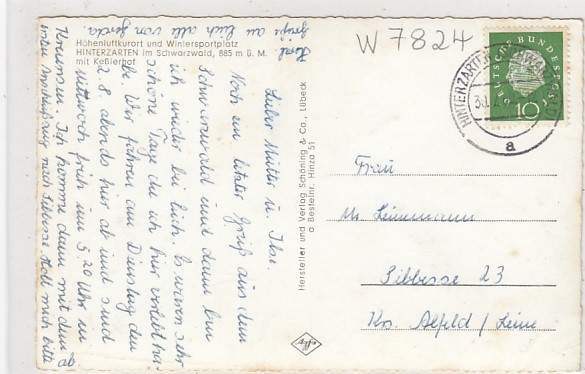 Höhenluftkurort und Wintersportplatz
HINTERZARTEN im Schwarzwald, 885 m ü. M.
mit Keßlerhof
Liebe Mutter u. Ilse.
Noch ein letzter Gruß aus dem
Schwarzwald und dann bin
ich wieder bei Euch. Es waren sehr
schöne Tage die ich hier verlebt ha-
be. Wir fahren am Dienstag den
2. 8. abends hier ab und sind
Mittwoch früh um 5.20 Uhr in
Ich komme dann mit dem
nach Sibbesse. Holt mich bitte
ab
Herzl. Grüße an Euch alle von
Hersteller und Verlag Schöning & Co., Lübeck
a Bestelnr. Hinza 51
W 7824
DEUTSCHE BUNDESPOST
10
HINTERZARTEN
a
Frau
Sibbesse 23
Krs. Alfeld / Leine